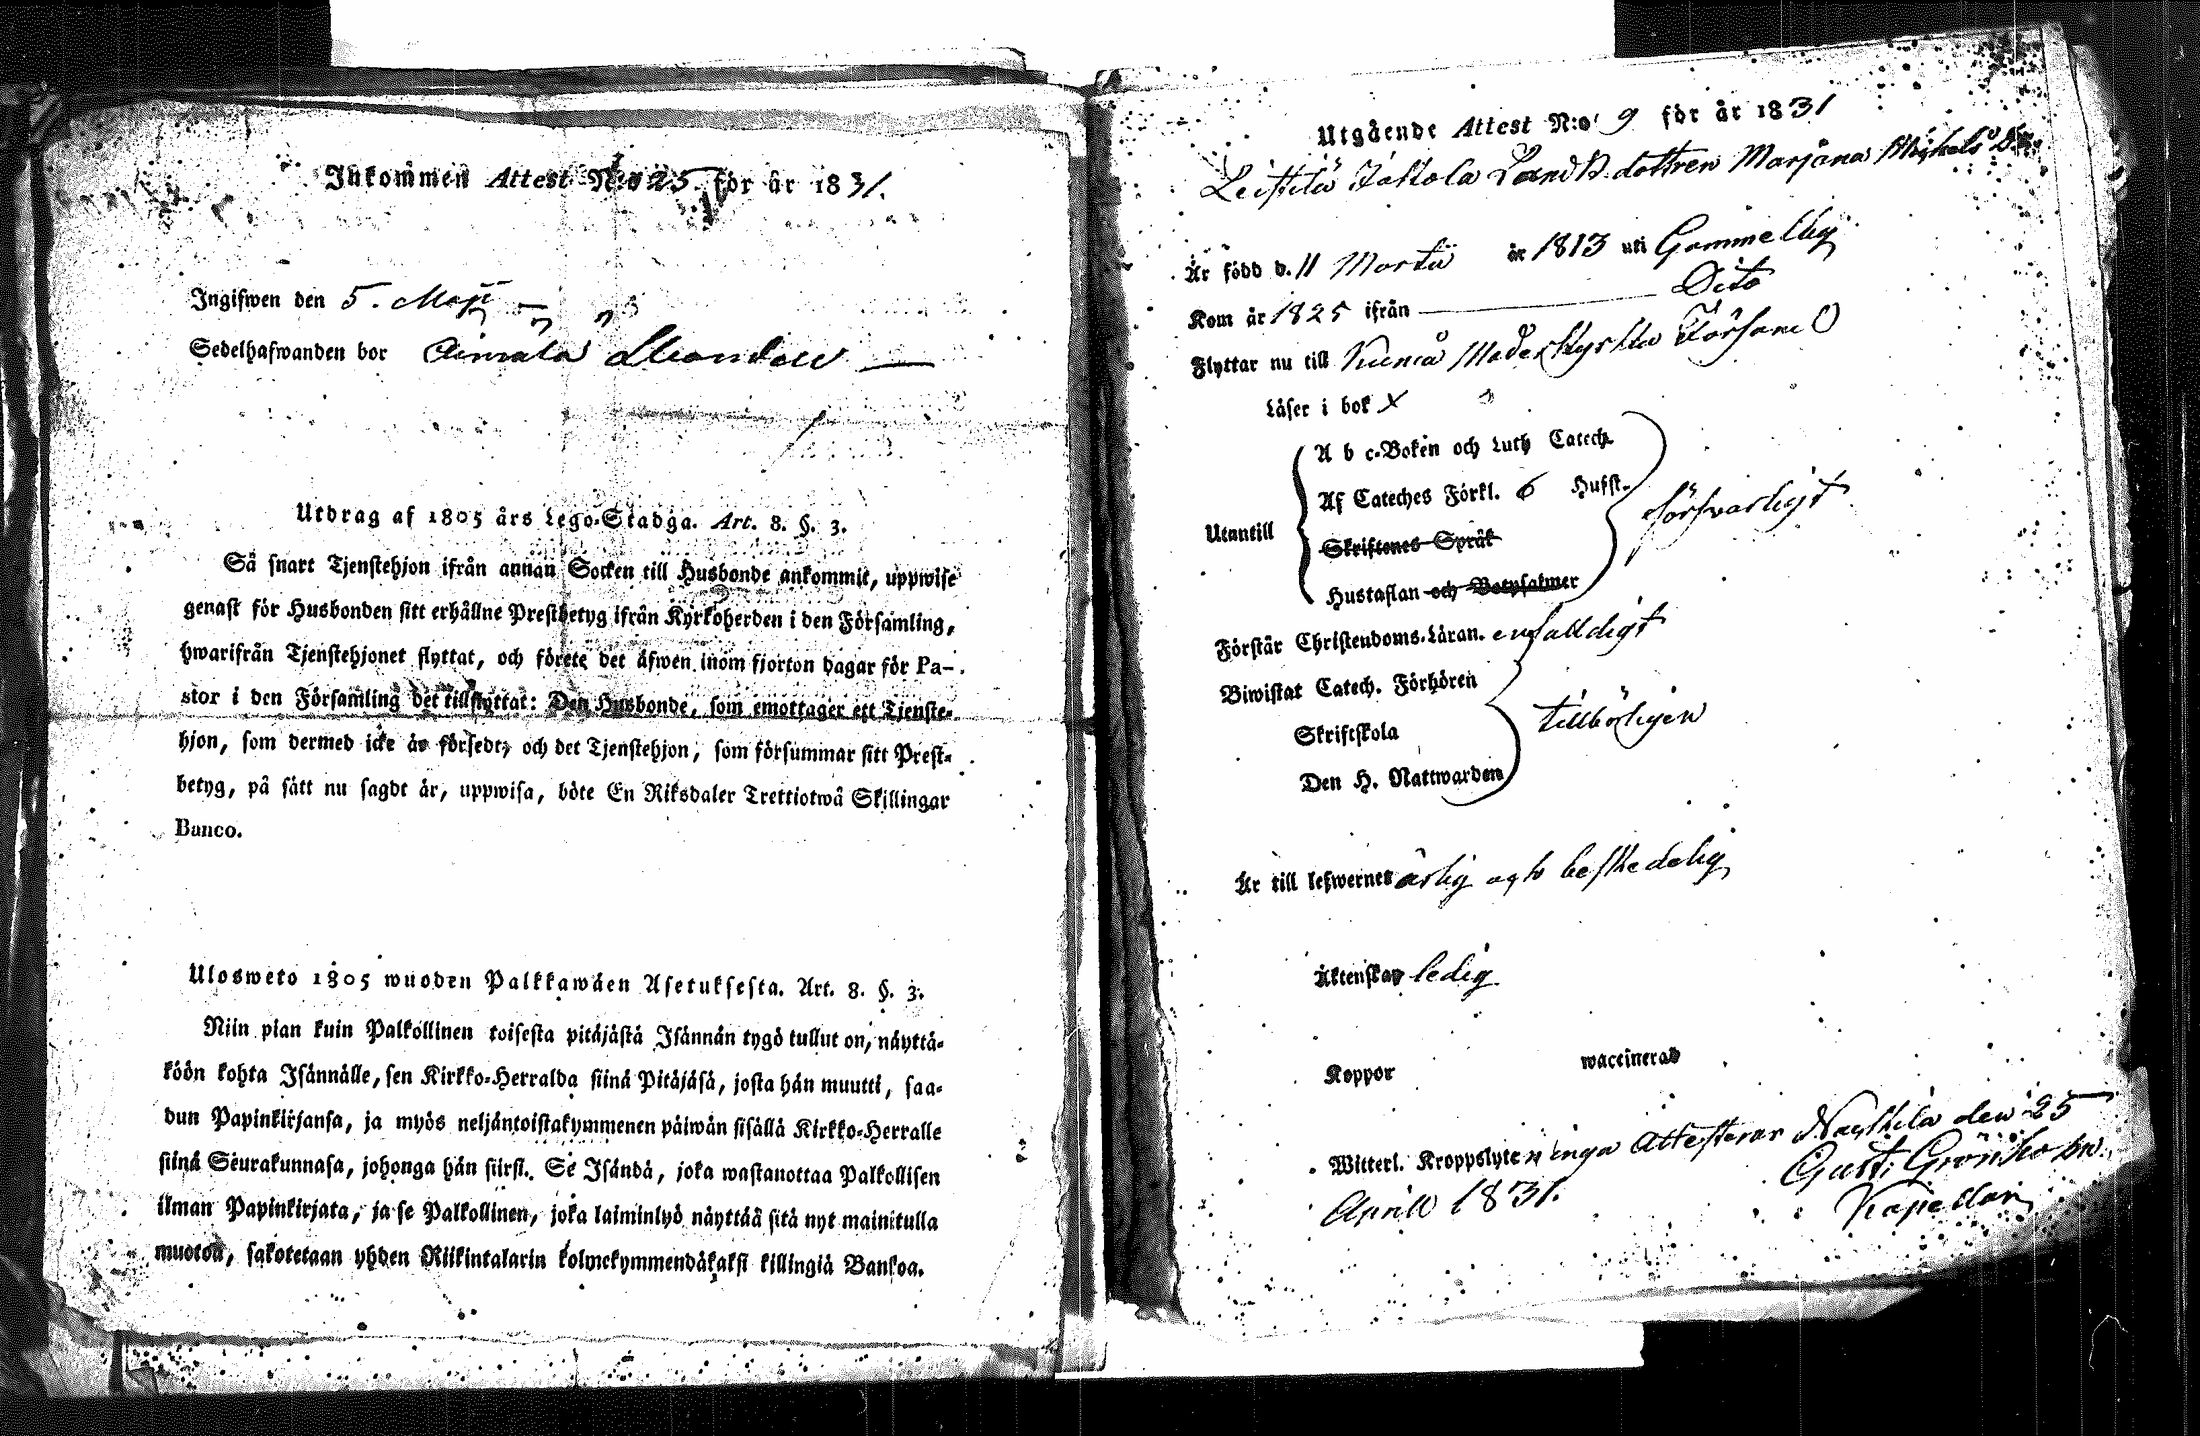 Inkommen Attest N:o 25 för år 1831.
Ingifwen den 5. Maji
Sedelhafwanden bor
Utdrag af 1805 års Lego-Stadga. Art. 8. §. 3.
Så snart Tjenstehjon ifrån annan Socken till Husbonde ankommit, uppwise
genast för Husbonden sitt erhållne Prestbetyg ifrån Kyrkoherden i den Församling,
hwarifrån Tjenstehjonet flyttat, och förete det äfwen inom fjorton dagar för Pa-
stor i den Församling det tillflyttat: Den Husbonde, som emottager ett Tjenste-
hjon, som dermed icke är försedt, och det Tjenstehjon, som försummar sitt Prest-
betyg, på sätt nu sagdt är, uppwisa, böte En Riksdaler Trettiotwå Skillingar
Banco.
Ulosweto 1805 wuoden Palkkawäen Asetuksesta. Art. 8. §. 3.
Niin pian kuin Palkollinen toisesta pitäjästä Isännän tygö tullut on, näyttä-
köön kohta Isännälle, sen Kirkko-Herralda siinä Pitäjäsä, josta hän muutti, saa-
dun Papinkirjansa, ja myös neljäntoistakymmenen päiwän sisällä Kirkko-Herralle
siinä Seurakunnasa, johonga hän siirsi. Se Isändä, joka wastanottaa Palkollisen
ilman Papinkirjata, ja se Palkollinen, joka laiminlyö näyttää sitä nyt mainitulla
muotoa, sakotetaan yhden Riikintalarin kolmekymmendäkaksi killingiä Bankoa.
Utgående Attest N:o 9 för år 1831
Leistilä Jakkola dottren Marjana Mickels Dr.
Är född d. 11 Martii år 1813 uti Gammelby
Kom år 1825 ifrån Dito
Flyttar nu till Kumå Moderkyrko Församl
Läser i bok x
A b c-Boken och Luth Catech.
Af Cateches Förkl. 6 Hufst.
Utantill
försvarligt
Skriftenes Språk
Hustaflan och Botpsalmer
Förstår Christendoms-Läran. enfalldigt
Biwistat Catech. Förhören
Skriftskola
tillbörligen
Den H. Nattwarden
Är till lefwernet ärlig och beskedelig
Äktenskap ledig
Koppor waccinerad
Witterl. Kroppslyten inga Attesterar Nackila den 25
April 1831.
Gust: Grönholm
Kapellan